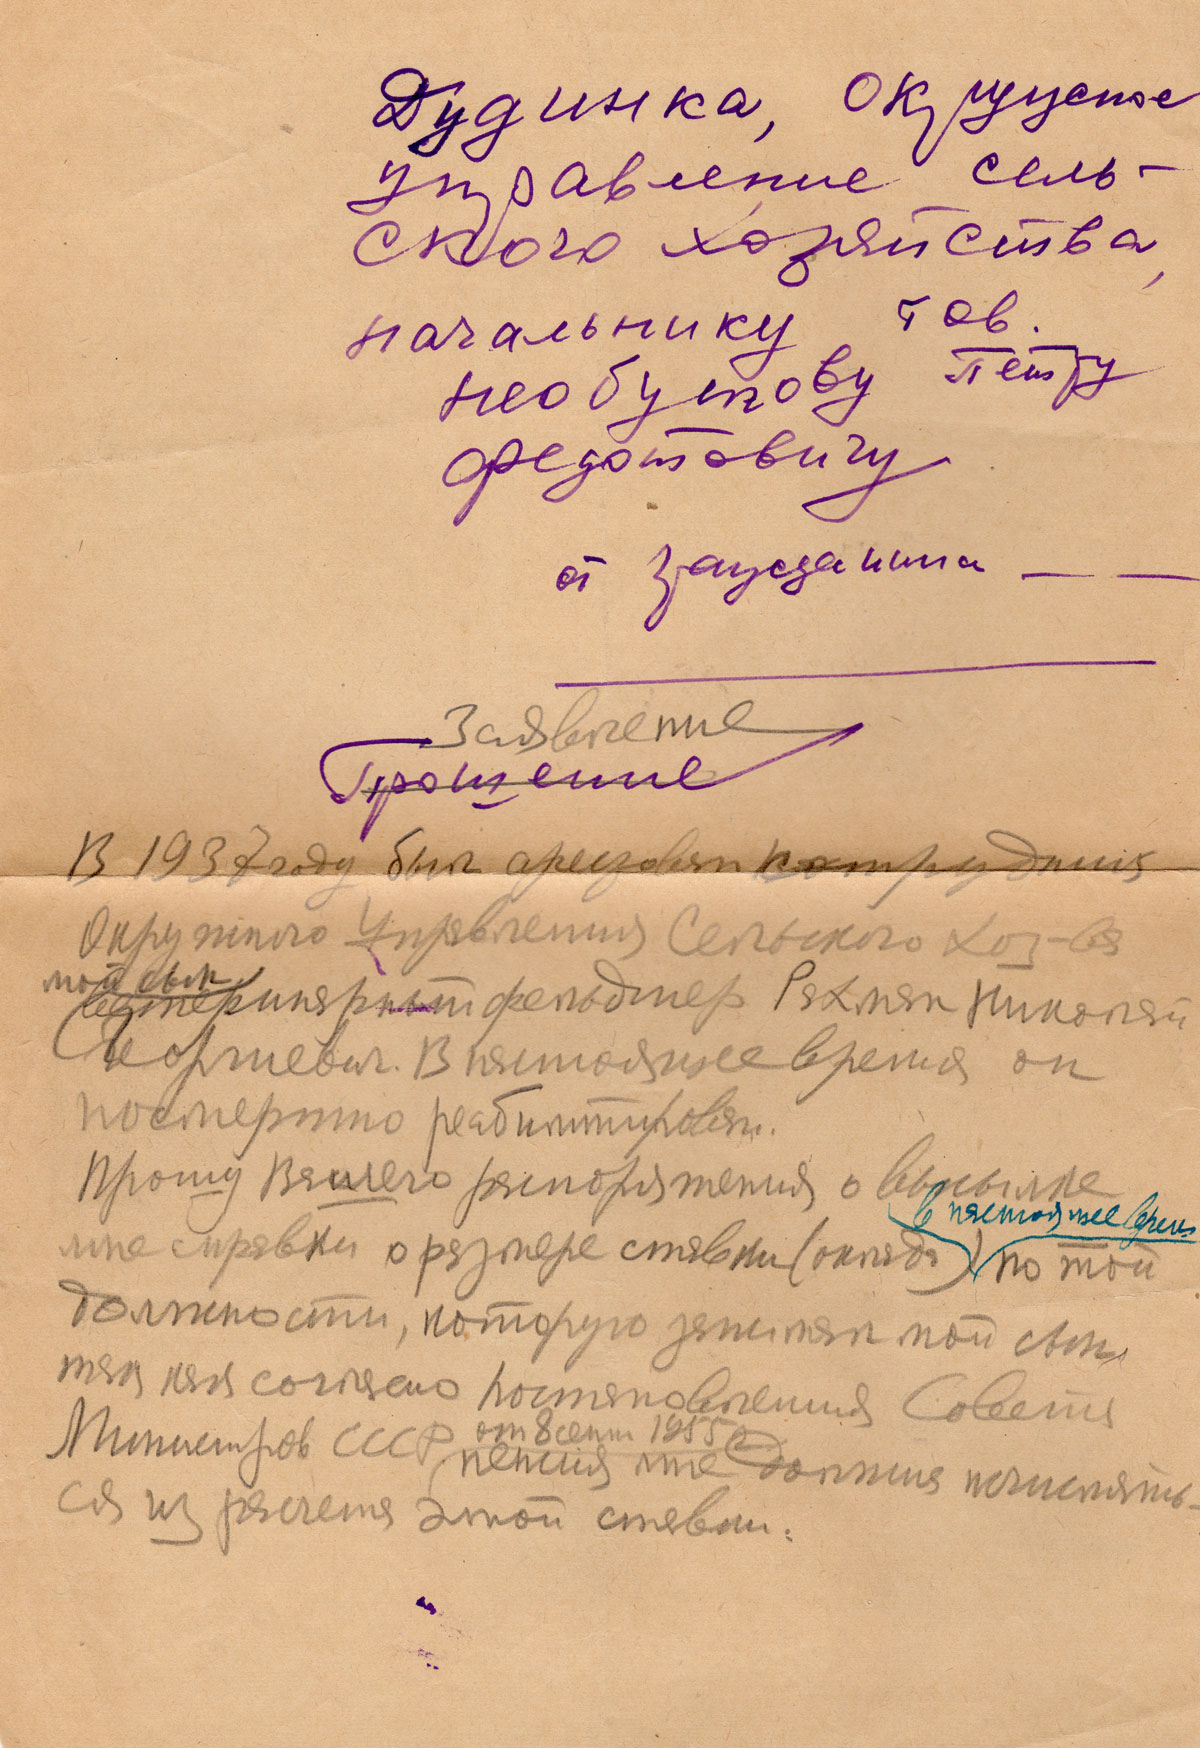 Дудинка, Окружное
управление сель-
ского хозяйства,
начальнику тов.
Петру
Федотовичу
от гражданина — —
Заявление
Прошение
В 1937 году был арестован сотрудник
Окружного Управления Сельского Хоз-ва
мой сын
ветеринарный фельдшер Рахман Николай
Георгиевич. В настоящее время он
посмертно реабилитирован.
Прошу Вашего распоряжения о высылке
в настоящее время
мне справки о размере ставки (оклада) по той
должности, которую занимал мой сын,
так как согласно Постановления Совета
от 8 сент 1955 г
Министров СССР пенсия мне должна исчислять-
ся из расчета этой ставки.